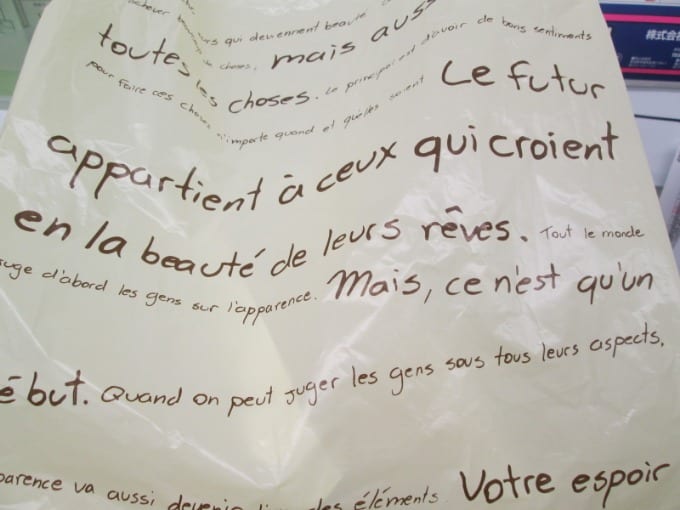 qui deviennent beauté
achever beaucoup de choses, mais aussi
toutes les choses. Le principal est d'avoir de bons sentiments
pour faire ces choses n'importe quand et quelles soient Le futur
appartient à ceux qui croient
en la beauté de leurs rêves. Tout le monde
juge d'abord les gens sur l'apparence. Mais, ce n'est qu'un
ébut. Quand on peut juger les gens sous tous leurs aspects,
parence va aussi devenir des éléments. Votre espoir
株式会